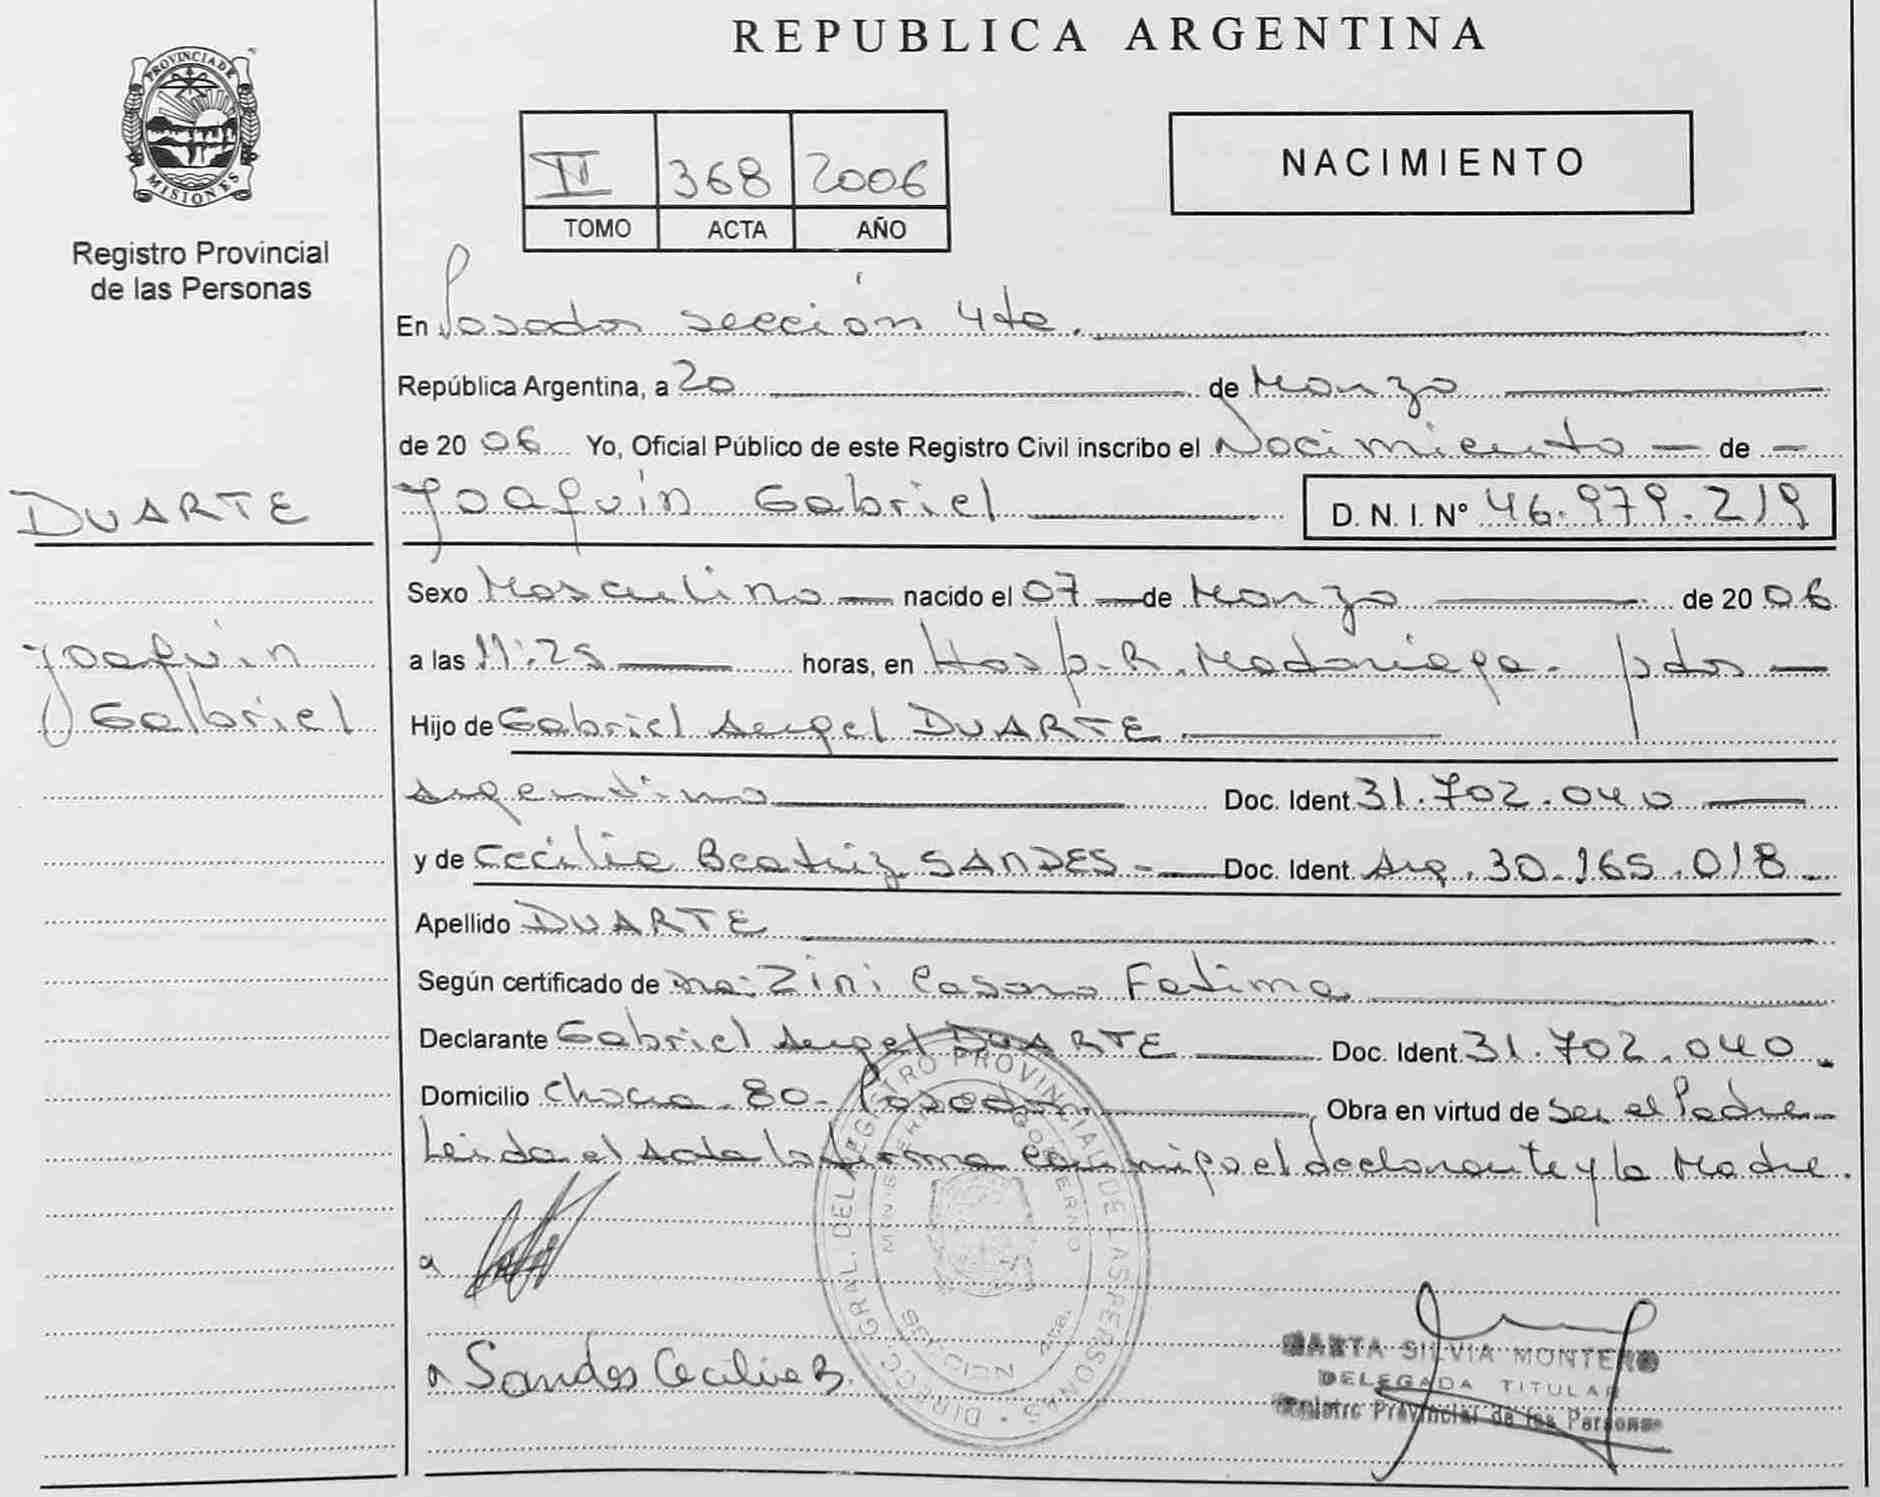 REPUBLICA ARGENTINA
PROVINCIA DE
MISIONES
Registro Provincial
de las Personas
II 368 2006
TOMO ACTA AÑO
NACIMIENTO
En Posadas sección 4ta.
República Argentina, a 20 de Marzo
de 2006 Yo, Oficial Público de este Registro Civil inscribo el Nacimiento de
DUARTE
Joaquín Gabriel D.N.I. Nº 46.979.219
Joaquin
Gabriel
Sexo Masculino nacido el 07 de Marzo de 2006
a las 11:25 horas, en Hosp. R. Madariaga - pdas
Hijo de Gabriel Angel DUARTE
argentino Doc. Ident. 31.702.040
y de Cecilia Beatriz SANDES - Doc. Ident. Arg. 30.165.018
Apellido DUARTE
Según certificado de Zini Fatima
Declarante Gabriel Angel DUARTE Doc. Ident. 31.702.040
Domicilio Chaco - 80 - Posadas. Obra en virtud de Ser el Padre
Leida el acta la firma conmigo el declarante y la Madre.
DIRECC. GRAL. DEL REGISTRO PROVINCIAL DE LAS PERSONAS
MINISTERIO GOBIERNO
Sandes Cecilia B.
MARTA SILVIA MONTERO
DELEGADA TITULAR
Registro Provincial de las Personas